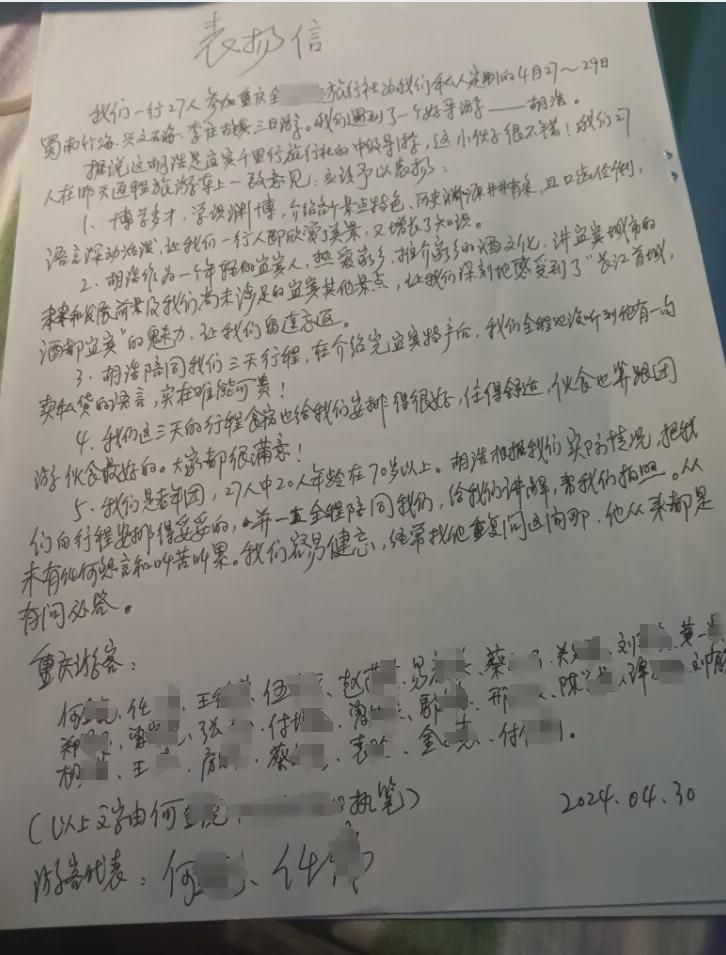 表扬信
我们一行27人参加重庆全 旅行社为我们私人定制的4月27~29日
蜀南竹海、兴文石海、李庄古镇三日游。我们遇到了一个好导游——胡浩。
据说这胡浩是宜宾千里行旅行社的中级导游，这小伙子很不错！我们27
人在昨天返程旅游车上一致意见：应该予以表扬：
1、博学多才，学识渊博，介绍各个景点特色、历史渊源井井有条，且口齿伶俐，
语言生动活泼，让我们一行人即欣赏了美景，又增长了知识。
2、胡浩作为一个年轻的宜宾人，热爱家乡，推介家乡的酒文化，讲宜宾城市的
未来和发展前景及我们尚未涉足的宜宾其他景点，让我们深刻地感受到了“长江首城，
酒都宜宾”的魅力，让我们留连忘返。
3、胡浩陪同我们三天行程，在介绍完宜宾特产后，我们全程也没听到他有一句
卖私货的语言，实在难能可贵！
4、我们这三天的行程食宿也给我们安排得很好，住得舒适，伙食也算跟团
游伙食最好的。大家都很满意！
5、我们是老年团，27人中20人年龄在70岁以上。胡浩根据我们实际情况，把我
们的行程安排得妥妥的，并一直全程陪同我们，给我们讲解，帮我们拍照。从
未有任何怨言和叫苦叫累。我们容易健忘，经常找他重复问这问那，他从来都是
有问必答。
重庆游客：
何 、任 、王 、伍 、赵 、易 、蔡 、关 、刘 、黄一
郑 、曾 、张 、付 、曾 、郭 、邢 、陈 、谭 、刘
杨 、王 、 、蔡 、袁 、金 、付 。
（以上文字由何 执笔）
2024.04.30
游客代表：何 、任